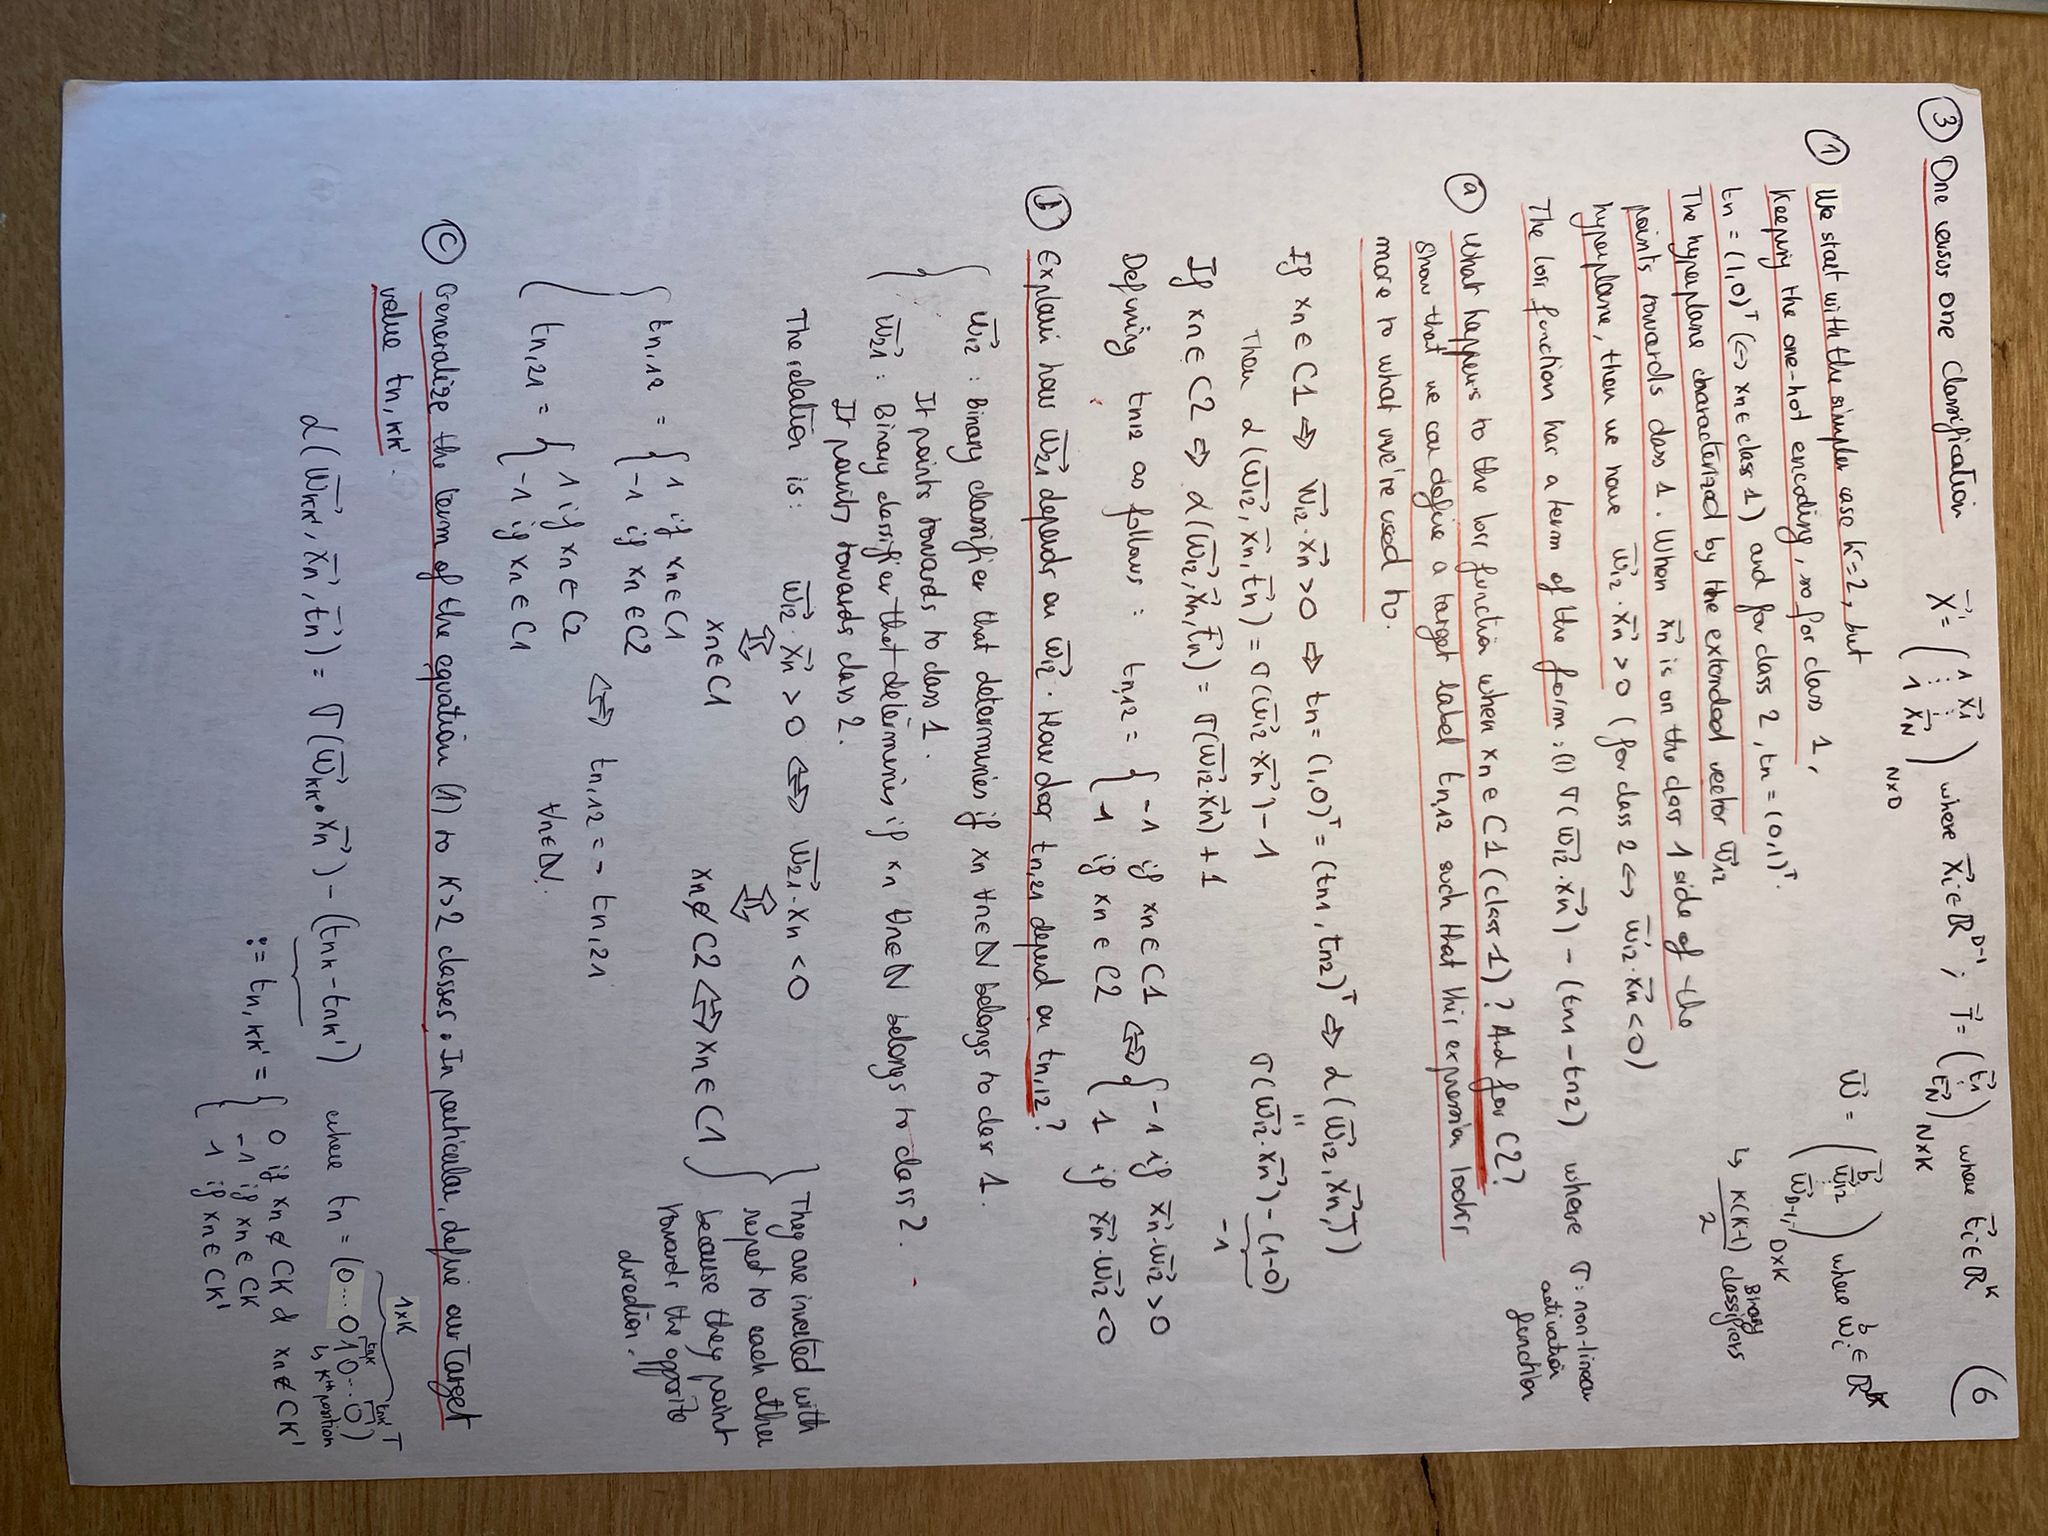 ③ One versus one Classification X⃗ = ( 1 x⃗1 ⋮ ⋮ 1 x⃗N ) N×D where x⃗i ∈ ℝ^D-1 ; T⃗ = ( t⃗1 ⋮ t⃗N ) N×K where t⃗i ∈ ℝ^K 6
① We start with the simpler case K=2, but
Keeping the one-hot encoding, so for class 1,
tn = (1,0)^T (↔ xn ∈ class 1) and for class 2, tn = (0,1)^T.
w⃗ = ( b⃗ w⃗12 ⋮ w⃗D-1, ) D×K where w⃗i ∈ ℝ^K
↳ K(K-1)/2 Binary classifiers
The hyperplane characterized by the extended vector w⃗12
points towards class 1. When x⃗n is on the class 1 side of the
hyperplane, then we have w⃗12 · x⃗n > 0 (for class 2 ↔ w⃗12 · x⃗n < 0)
The loss function has a term of the form: (1) σ(w⃗12 · x⃗n) - (tn1 - tn2) where σ: non-linear
activation
function
ⓐ What happens to the loss function when xn ∈ C1 (class 1)? And for C2?
Show that we can define a target label tn,12 such that this expression looks
more to what we're used to.
If xn ∈ C1 ⇒ w⃗12 · x⃗n > 0 ⇒ tn = (1,0)^T = (tn1, tn2)^T ⇒ L(w⃗12, x⃗n, T)
Then L(w⃗12, x⃗n, t⃗n) = σ(w⃗12 · x⃗n) - 1 = σ(w⃗12 · x⃗n) - (1-0)
-1
If xn ∈ C2 ⇒ L(w⃗12, x⃗n, t⃗n) = σ(w⃗12 · x⃗n) + 1
Defining tn12 as follows : tn,12 = { -1 if xn ∈ C1 ⇔ { -1 if x⃗n · w⃗12 > 0
1 if xn ∈ C2 1 if x⃗n · w⃗12 < 0
ⓑ Explain how w⃗21 depends on w⃗12. How does tn,21 depend on tn,12?
w⃗12 : Binary classifier that determines if xn ∀n∈ℕ belongs to class 1.
It points towards to class 1.
w⃗21 : Binary classifier that determines if xn ∀n∈ℕ belongs to class 2.
It points towards class 2.
The relation is: w⃗12 · x⃗n > 0 ⇔ w⃗21 · xn < 0
⇕ ⇕
xn ∈ C1 xn ∉ C2 ⇔ xn ∈ C1
They are inverted with
respect to each other
because they point
towards the opposite
direction.
tn,12 = { 1 if xn ∈ C1
-1 if xn ∈ C2
⇔ tn,12 = - tn,21
∀n∈ℕ.
tn,21 = { 1 if xn ∈ C2
-1 if xn ∈ C1
ⓒ Generalize the term of the equation (1) to K>2 classes. In particular, define our Target
value tn,kk'.
1×K
L(w⃗kk', x⃗n, t⃗n) = σ(w⃗kk' · x⃗n) - (tnk - tnk') where tn = (0...0 1 0...0)^T
tnk tnk'
↳ Kth position
:= tn,kk' = { 0 if xn ∉ CK & xn ∉ CK'
-1 if xn ∈ CK
1 if xn ∈ CK'